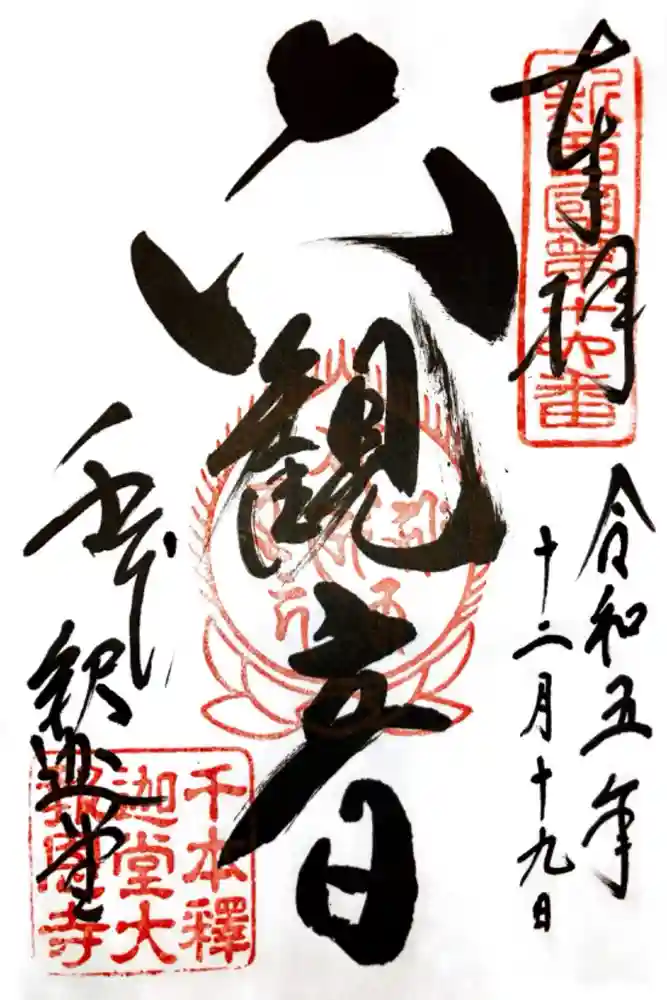 奉拝
新西國第十六番
令和五年
十二月十九日
六観音
千本
釈迦堂
千本釋
迦堂大
報恩寺